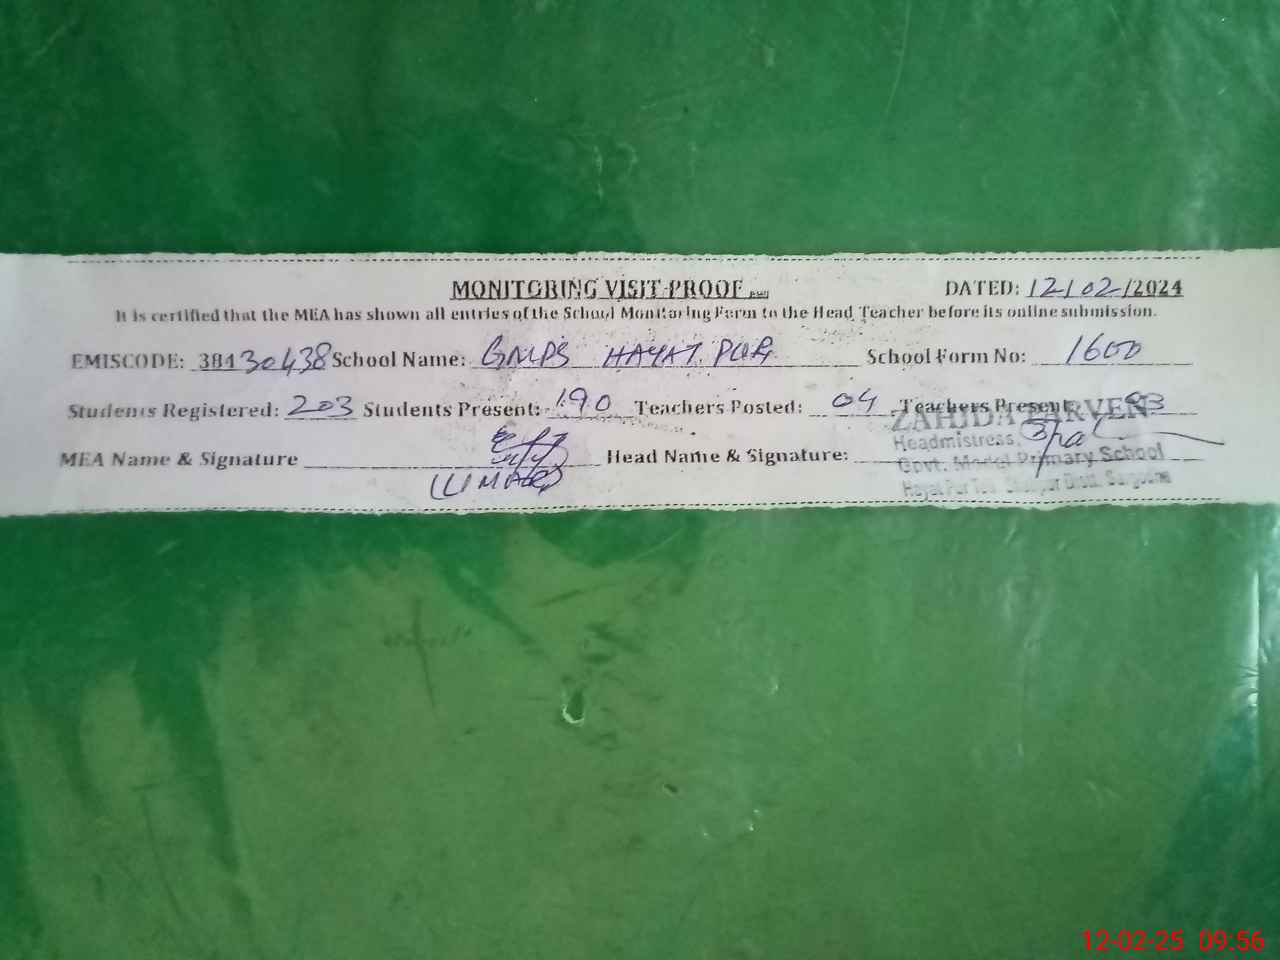 MONITORING VISIT PROOF DATED: 12/02/2024
It is certified that the MEA has shown all entries of the School Monitoring Form to the Head Teacher before its online submission.
EMISCODE: 38130438 School Name: GMPS HAYAT PUR School Form No: 1600
Students Registered: 203 Students Present: 190 Teachers Posted: 04 Teachers Present: 03
ZAHIDA PARVEEN
Headmistress
MEA Name & Signature Head Name & Signature:
Govt. Model Primary School
Hayat Pur Sargodha
12-02-25 09:56